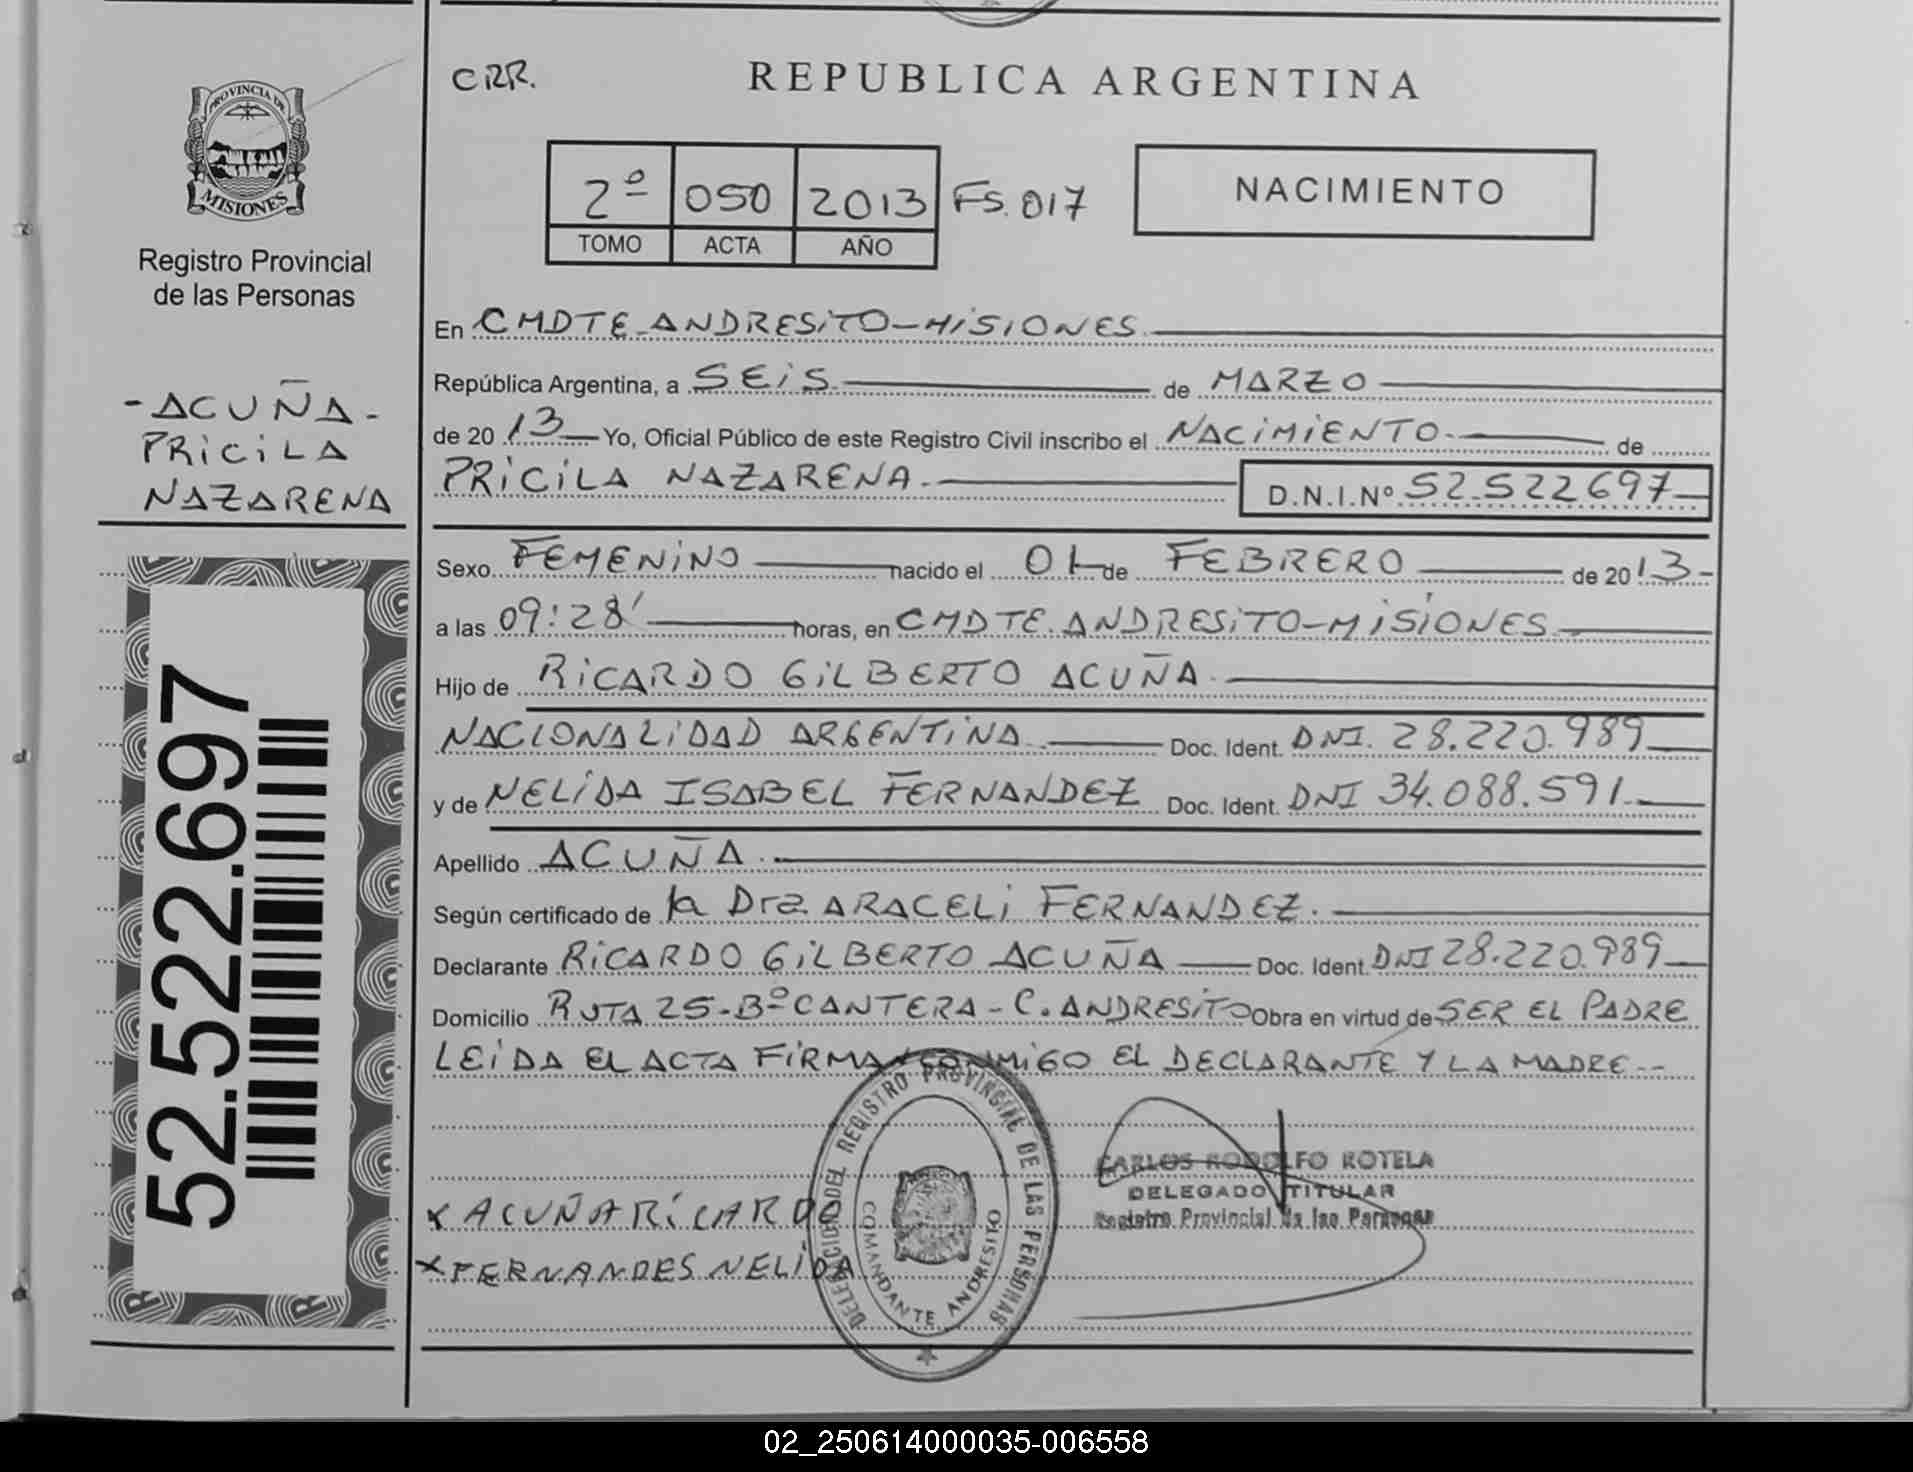 PROVINCIA DE
MISIONES
Registro Provincial
de las Personas
- ACUÑA -
PRICILA
NAZARENA
52.522.697
CRR.
REPUBLICA ARGENTINA
2º 050 2013 FS. 017
TOMO ACTA AÑO
NACIMIENTO
En CMDTE. ANDRESITO - MISIONES
República Argentina, a SEIS de MARZO
de 2013 Yo, Oficial Público de este Registro Civil inscribo el NACIMIENTO de
PRICILA NAZARENA. D.N.I.Nº 52.522697
Sexo FEMENINO nacido el 01 de FEBRERO de 2013
a las 09:28' horas, en CMDTE. ANDRESITO - MISIONES
Hijo de RICARDO GILBERTO ACUÑA.
NACIONALIDAD ARGENTINA Doc. Ident. DNI. 28.220.989
y de NELIDA ISABEL FERNANDEZ Doc. Ident. DNI 34.088.591
Apellido ACUÑA.
Según certificado de la Dra ARACELI FERNANDEZ.
Declarante RICARDO GILBERTO ACUÑA Doc. Ident. DNI 28.220.989
Domicilio RUTA 25 - Bº CANTERA - C. ANDRESITO Obra en virtud de SER EL PADRE
LEIDA EL ACTA FIRMAN CONMIGO EL DECLARANTE Y LA MADRE --
DELEGACION DEL REGISTRO PROVINCIAL DE LAS PERSONAS
COMANDANTE ANDRESITO
CARLOS RODOLFO ROTELA
DELEGADO TITULAR
Registro Provincial de las Personas
x ACUÑA RICARDO
x FERNANDES NELIDA
02_250614000035-006558